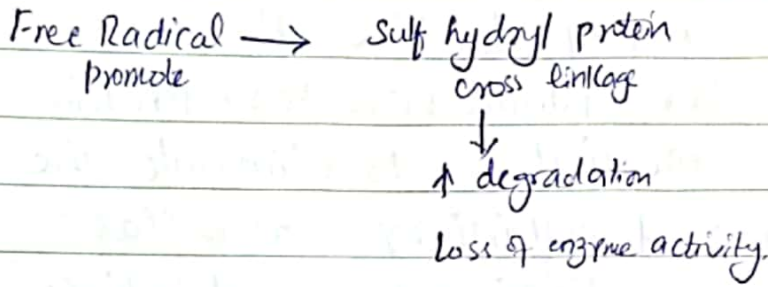 Free Radical → Sulf hydryl protein
promote cross linkage
↓
↑ degradation
Loss of enzyme activity.